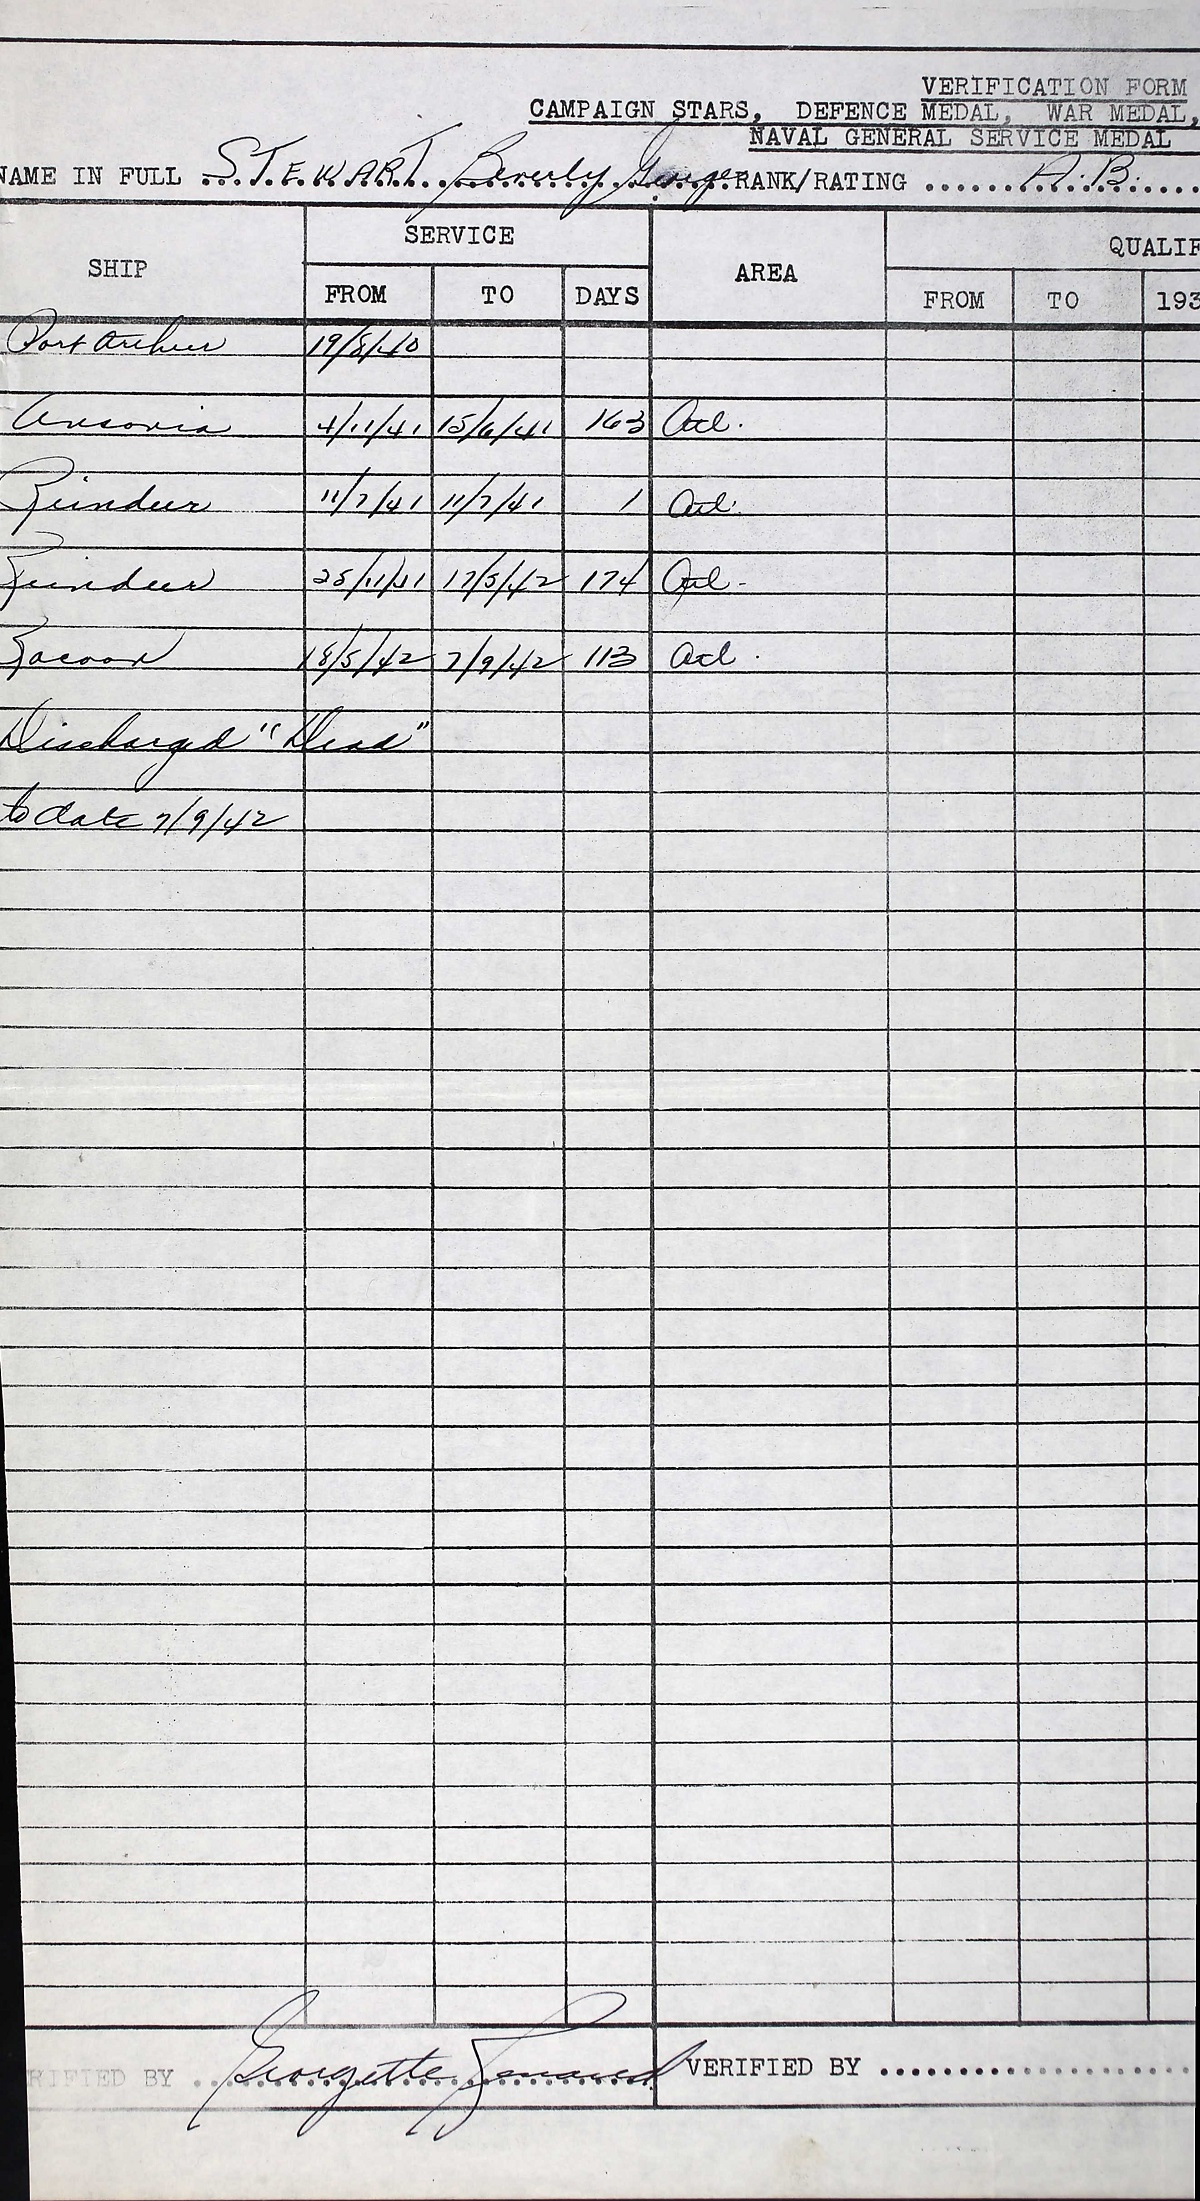 VERIFICATION FORM
CAMPAIGN STARS, DEFENCE MEDAL, WAR MEDAL,
NAVAL GENERAL SERVICE MEDAL
NAME IN FULL STEWART Beverly George RANK/RATING A.B.
SHIP SERVICE AREA QUALIF
FROM TO DAYS FROM TO 193
Port Arthur 19/8/40
Ansonia 4/11/41 15/6/41 163 Atl.
Reindeer 11/7/41 11/7/41 1 Atl.
Reindeer 25/11/41 17/5/42 174 Atl-
Racoon 18/5/42 7/9/42 113 Atl.
Discharged "Dead"
to date 7/9/42
RIFIED BY Georgette VERIFIED BY